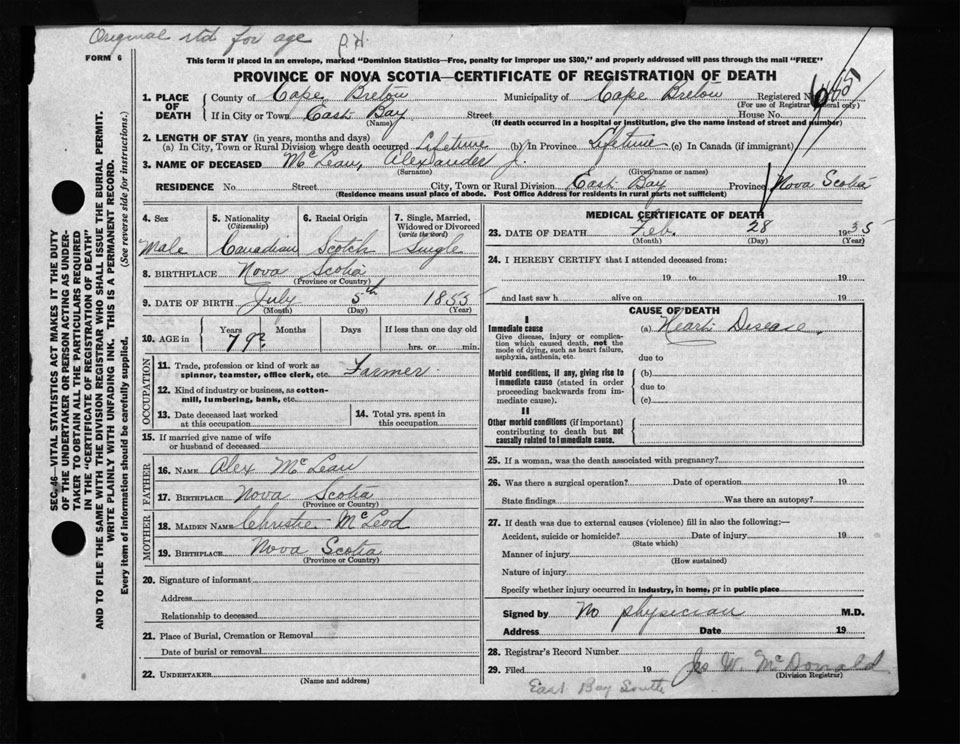 Original rtd for age P.H.
FORM 6
This form if placed in an envelope, marked "Dominion Statistics—Free, penalty for improper use $300," and properly addressed will pass through the mail "FREE"
PROVINCE OF NOVA SCOTIA—CERTIFICATE OF REGISTRATION OF DEATH
1. PLACE OF DEATH
County of Cape Breton Municipality of Cape Breton Registered No.
(For use of Registrar General only)
If in City or Town East Bay Street House No.
(Name) (If death occurred in a hospital or institution, give the name instead of street and number)
2. LENGTH OF STAY (in years, months and days)
(a) In City, Town or Rural Division where death occurred Lifetime (b) In Province Lifetime (c) In Canada (if immigrant)
3. NAME OF DECEASED McLean, Alexander J.
(Surname) (Given name or names)
RESIDENCE No. Street City, Town or Rural Division East Bay Province Nova Scotia
(Residence means usual place of abode. Post Office Address for residents in rural parts not sufficient)
4. Sex
Male
5. Nationality
(Citizenship)
Canadian
6. Racial Origin
Scotch
7. Single, Married, Widowed or Divorced
(write the word)
Single
8. BIRTHPLACE Nova Scotia
(Province or Country)
9. DATE OF BIRTH July 5th 1855
(Month) (Day) (Year)
10. AGE in
Years Months Days If less than one day old
79 hrs. or min.
OCCUPATION
11. Trade, profession or kind of work as spinner, teamster, office clerk, etc. Farmer.
12. Kind of industry or business, as cotton-mill, lumbering, bank, etc.
13. Date deceased last worked at this occupation
14. Total yrs. spent in this occupation
15. If married give name of wife or husband of deceased
FATHER
16. NAME Alex McLean
17. BIRTHPLACE Nova Scotia
(Province or Country)
MOTHER
18. MAIDEN NAME Christie McLeod
19. BIRTHPLACE Nova Scotia
(Province or Country)
20. Signature of informant
Address
Relationship to deceased
21. Place of Burial, Cremation or Removal
Date of burial or removal
22. UNDERTAKER
(Name and address)
MEDICAL CERTIFICATE OF DEATH
23. DATE OF DEATH Feb. 28 1935
(Month) (Day) (Year)
24. I HEREBY CERTIFY that I attended deceased from:
19 to 19
and last saw h alive on 19
CAUSE OF DEATH
I
Immediate cause (a) Heart Disease.
Give disease, injury or complication which caused death, not the mode of dying, such as heart failure, asphyxia, asthenia, etc.
due to
Morbid conditions, if any, giving rise to immediate cause (stated in order proceeding backwards from immediate cause).
(b)
due to
(c)
II
Other morbid conditions (if important) contributing to death but not causally related to immediate cause.
25. If a woman, was the death associated with pregnancy?
26. Was there a surgical operation? Date of operation 19
State findings Was there an autopsy?
27. If death was due to external causes (violence) fill in also the following:—
Accident, suicide or homicide? Date of injury 19
(State which)
Manner of injury
(How sustained)
Nature of injury
Specify whether injury occurred in industry, in home, or in public place
Signed by No physician M.D.
Address Date 19
28. Registrar's Record Number
29. Filed 19 Jas W. McDonald
(Division Registrar)
East Bay South
SEC. 46—VITAL STATISTICS ACT MAKES IT THE DUTY
OF THE UNDERTAKER OR PERSON ACTING AS UNDER-
TAKER TO OBTAIN ALL THE PARTICULARS REQUIRED
IN THE "CERTIFICATE OF REGISTRATION OF DEATH"
AND TO FILE THE SAME WITH THE DIVISION REGISTRAR WHO SHALL ISSUE THE BURIAL PERMIT.
WRITE PLAINLY WITH UNFADING INK. THIS IS A PERMANENT RECORD.
Every item of information should be carefully supplied. (See reverse side for instructions.)